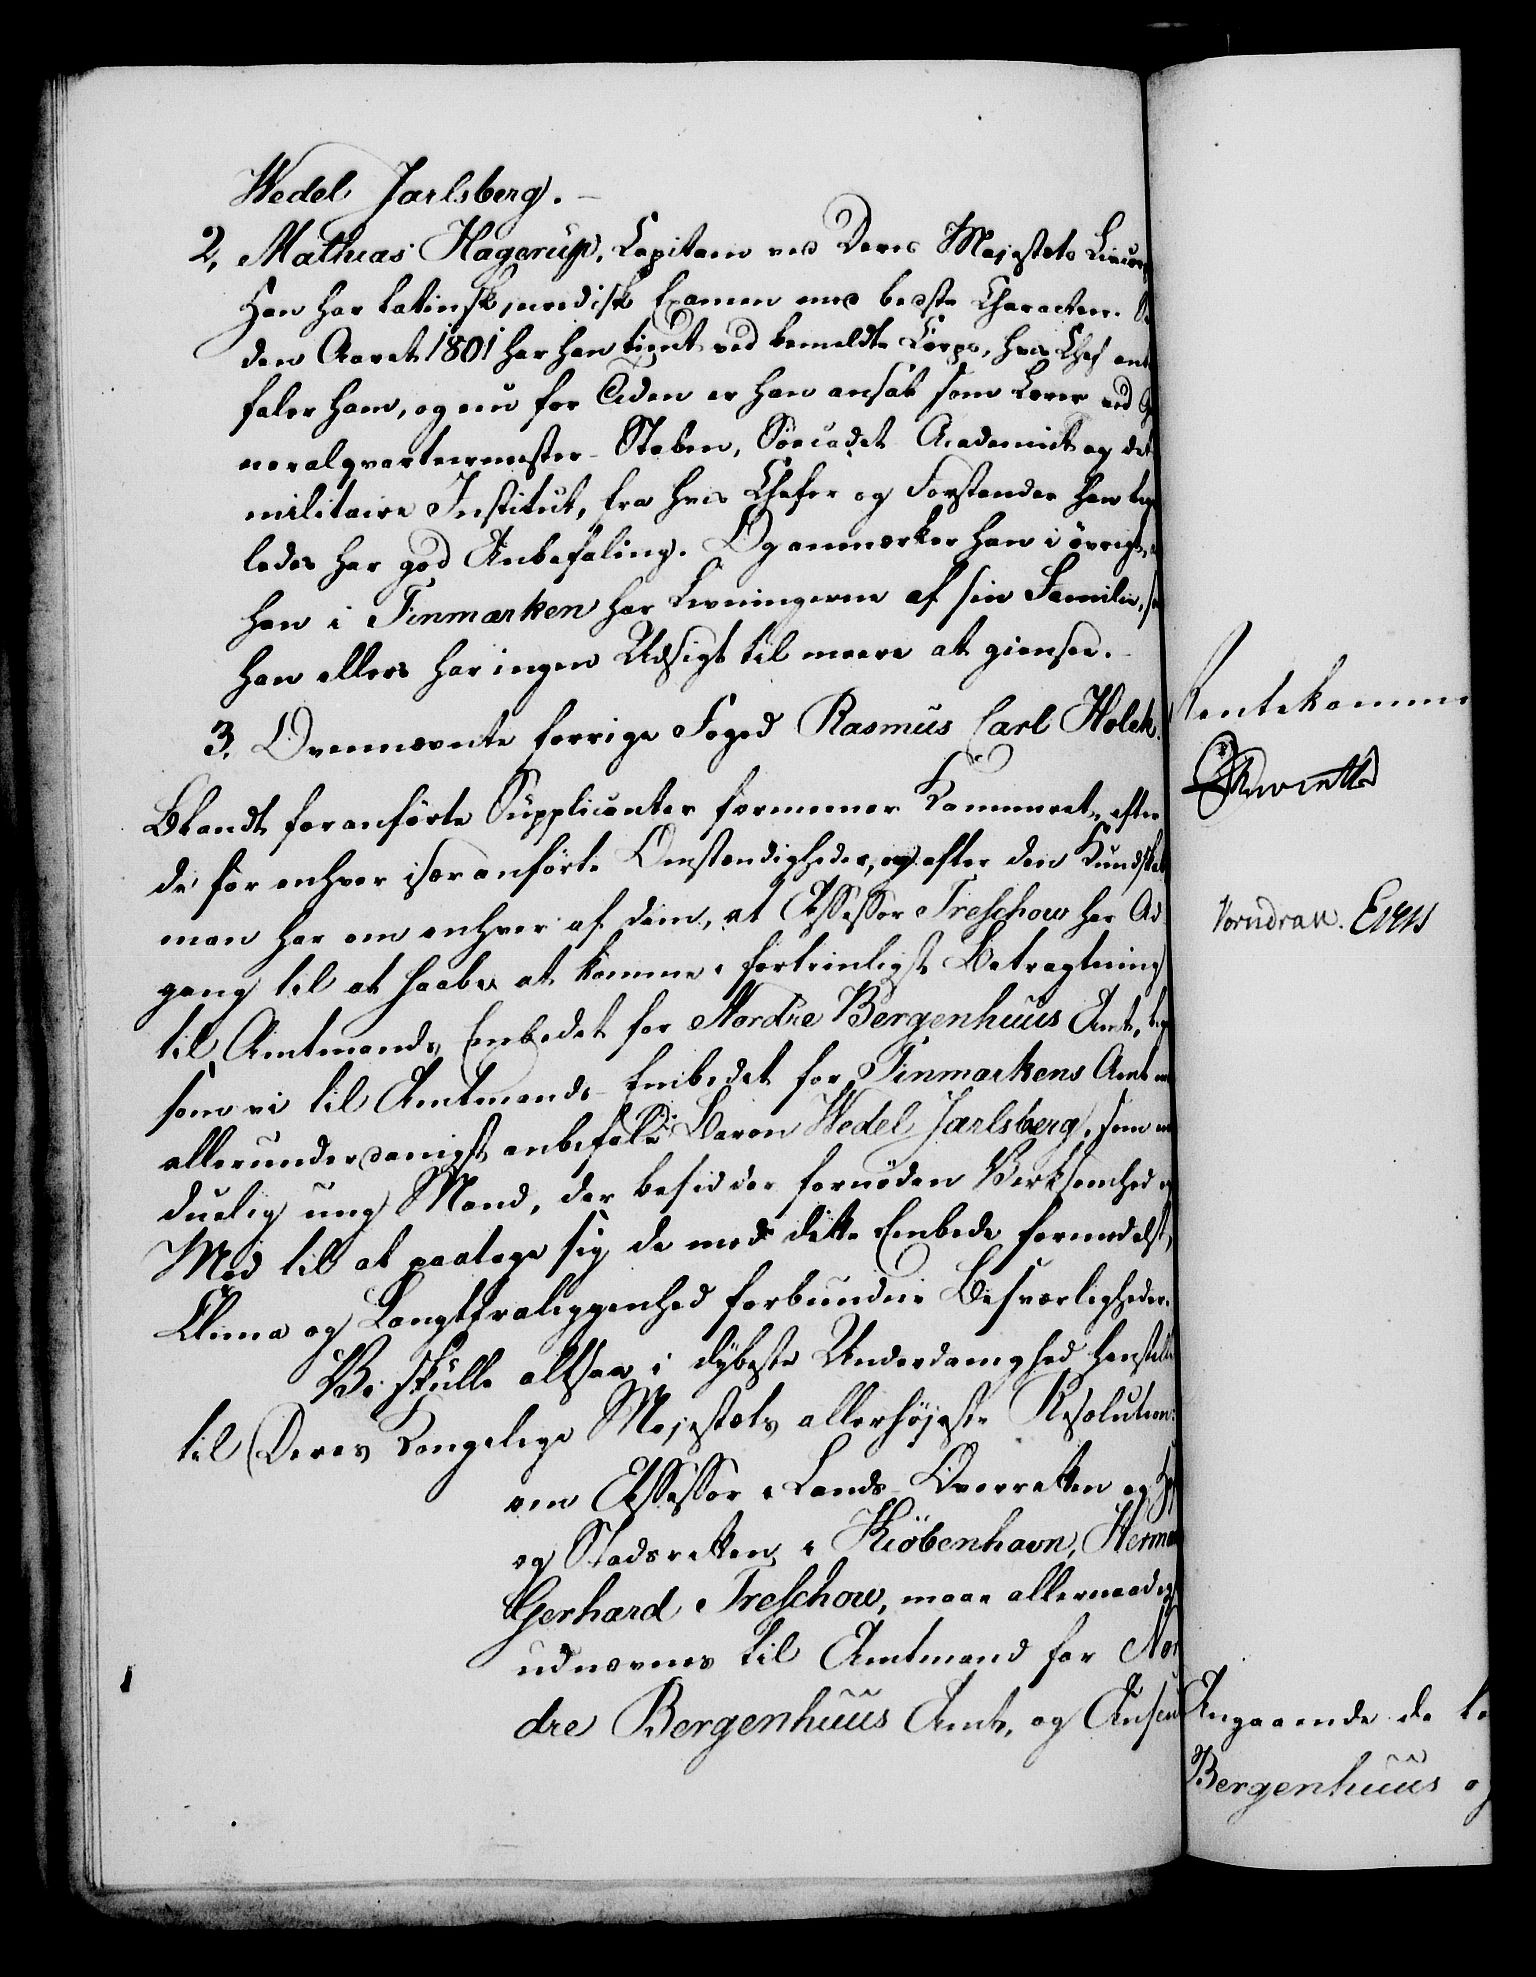 Wedel Jarlsberg. –
2, Mathias Hagerup, Capitain ved Deres Majestets Livcorps
Han har latinsk juridisk Examen med bedste Characteer. Si
den Aaret 1801 har han tient ved bemeldte Corps, hvis Chef anbe
faler ham, og nu for Tiden er han ansat som Lærer ved Ge
neralqvarteermester-Staben, Söecadet Academiet og det
militaire Institut, fra hvis Chefer og Forstander han lige
ledes har god Anbefaling. Og anmærker han i övrigt, at
han i Finmarken har Levningerne af sin Familie, som
han ellers har ingen Udsigt til meere at giensee.
3. Ovennævnte forrige Foged Rasmus Carl Holck.
Blandt foranförte Supplicanter formener Kammeret, efter
de for enhver især anförte Omstændigheder, og efter den Kundskab
man har om enhver af dem, at Assessor Treschow har Ad
gang til at haabe at komme i fortrinligst Betragtning
til Amtmands Embedet for Nordre Bergenhuus Amt, lige
som vi til Amtmands-Embedet for Finmarkens Amt maa
allerunderdanigst anbefale Baron Wedel Jarlsberg, som en
duelig ung Mand, der besidder fornöden Virksomhed og
Mod til at paatage sig de med dette Embede formedelst
Clima og Langtfraliggenhed forbundne Besværligheder.
Vi skulle altsaa i dÿbeste Underdanighed henstille
til Deres Kongelige Majestæts allerhöjeste Resolution:
om Assessor i Lands-Overretten og Hof
og Stadsretten i Kiöbenhavn, Herman
Gerhard Treschow, maae allernaadigst
udnævnes til Amtmand for Nor
dre Bergenhuus Amt, og Auscul
Rentekamme
Reventlow
Vorndran. Eiers
Angaaende de le
Bergenhuus og